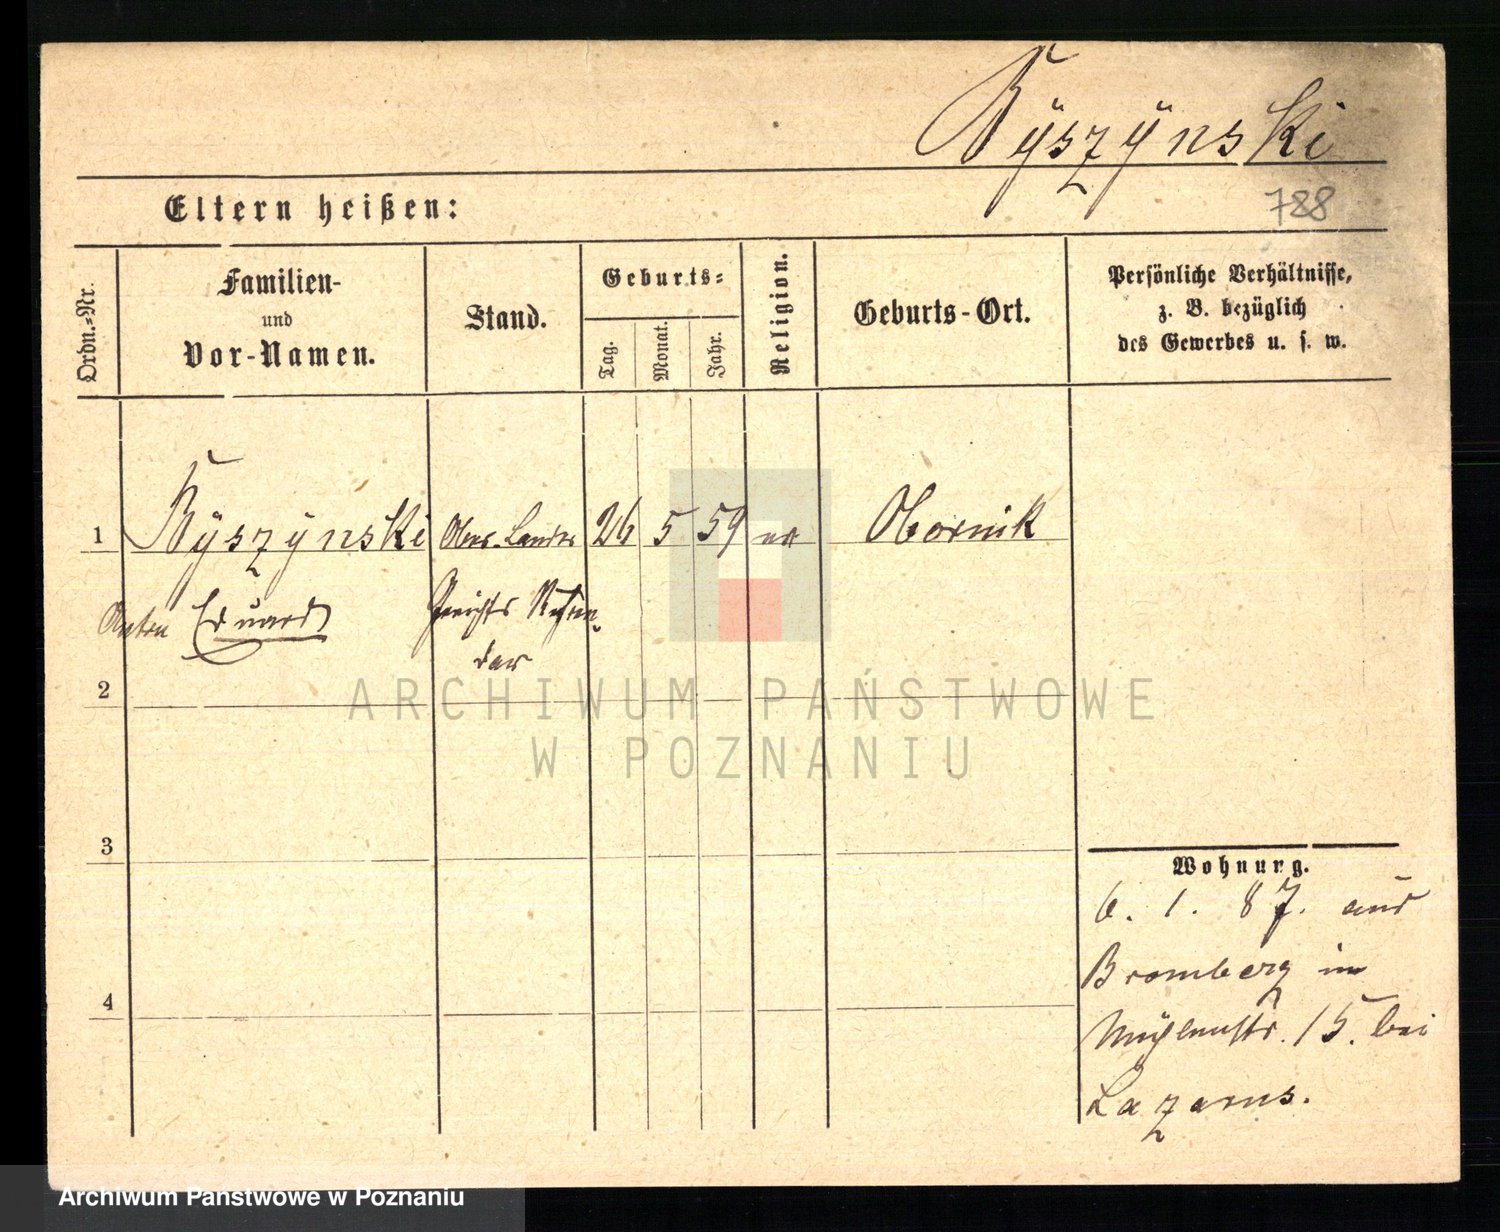 Ryszynski
788
Eltern heißen:
Ordn.-Nr.
Familien-
und
Vor-Namen.
Stand.
Geburts-
Tag.
Monat.
Jahr.
Religion.
Geburts-Ort.
Persönliche Verhältnisse,
z. B. bezüglich
des Gewerbes u. s. w.
1 Ryszynski Ober-Landes 26 5 59 Obornik
Anton Eduard Gerichts Referen-
dar
2
ARCHIWUM PAŃSTWOWE
W POZNANIU
3
Wohnung.
6. 1. 87. aus
Bromberg in
4
Mühlenstr. 15. bei
Lazarus.
Archiwum Państwowe w Poznaniu